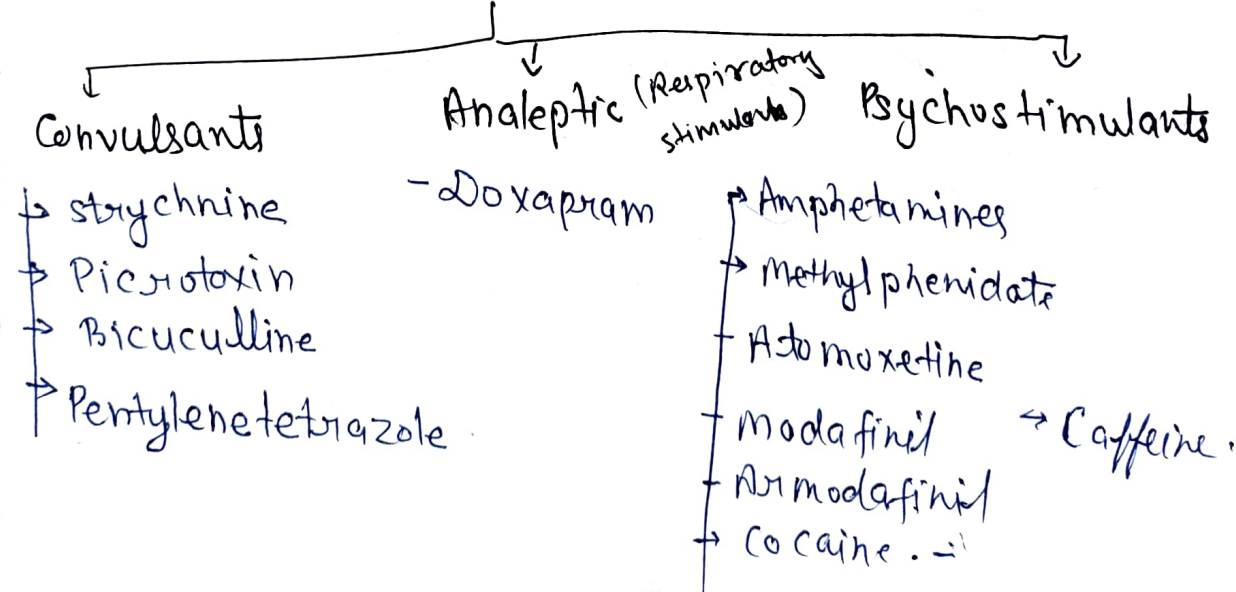 Convulsants
strychnine
Picrotoxin
Bicuculline
Pentylenetetrazole
Analeptic (Respiratory
stimulants)
- Doxapram
Psychostimulants
Amphetamines
Methylphenidate
Atomoxetine
Modafinil
Armodafinil
Cocaine.
→ Caffeine.